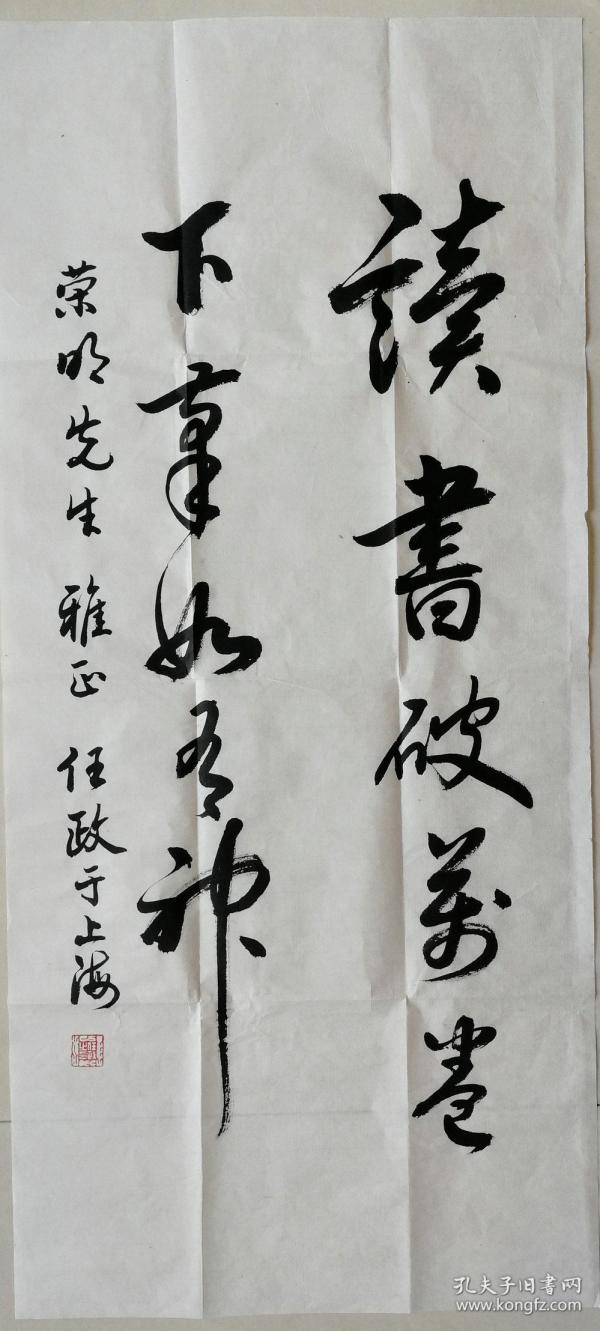 讀書破萬卷
下筆如有神
荣明先生 雅正 任政于上海
孔夫子旧書网
www.kongfz.com